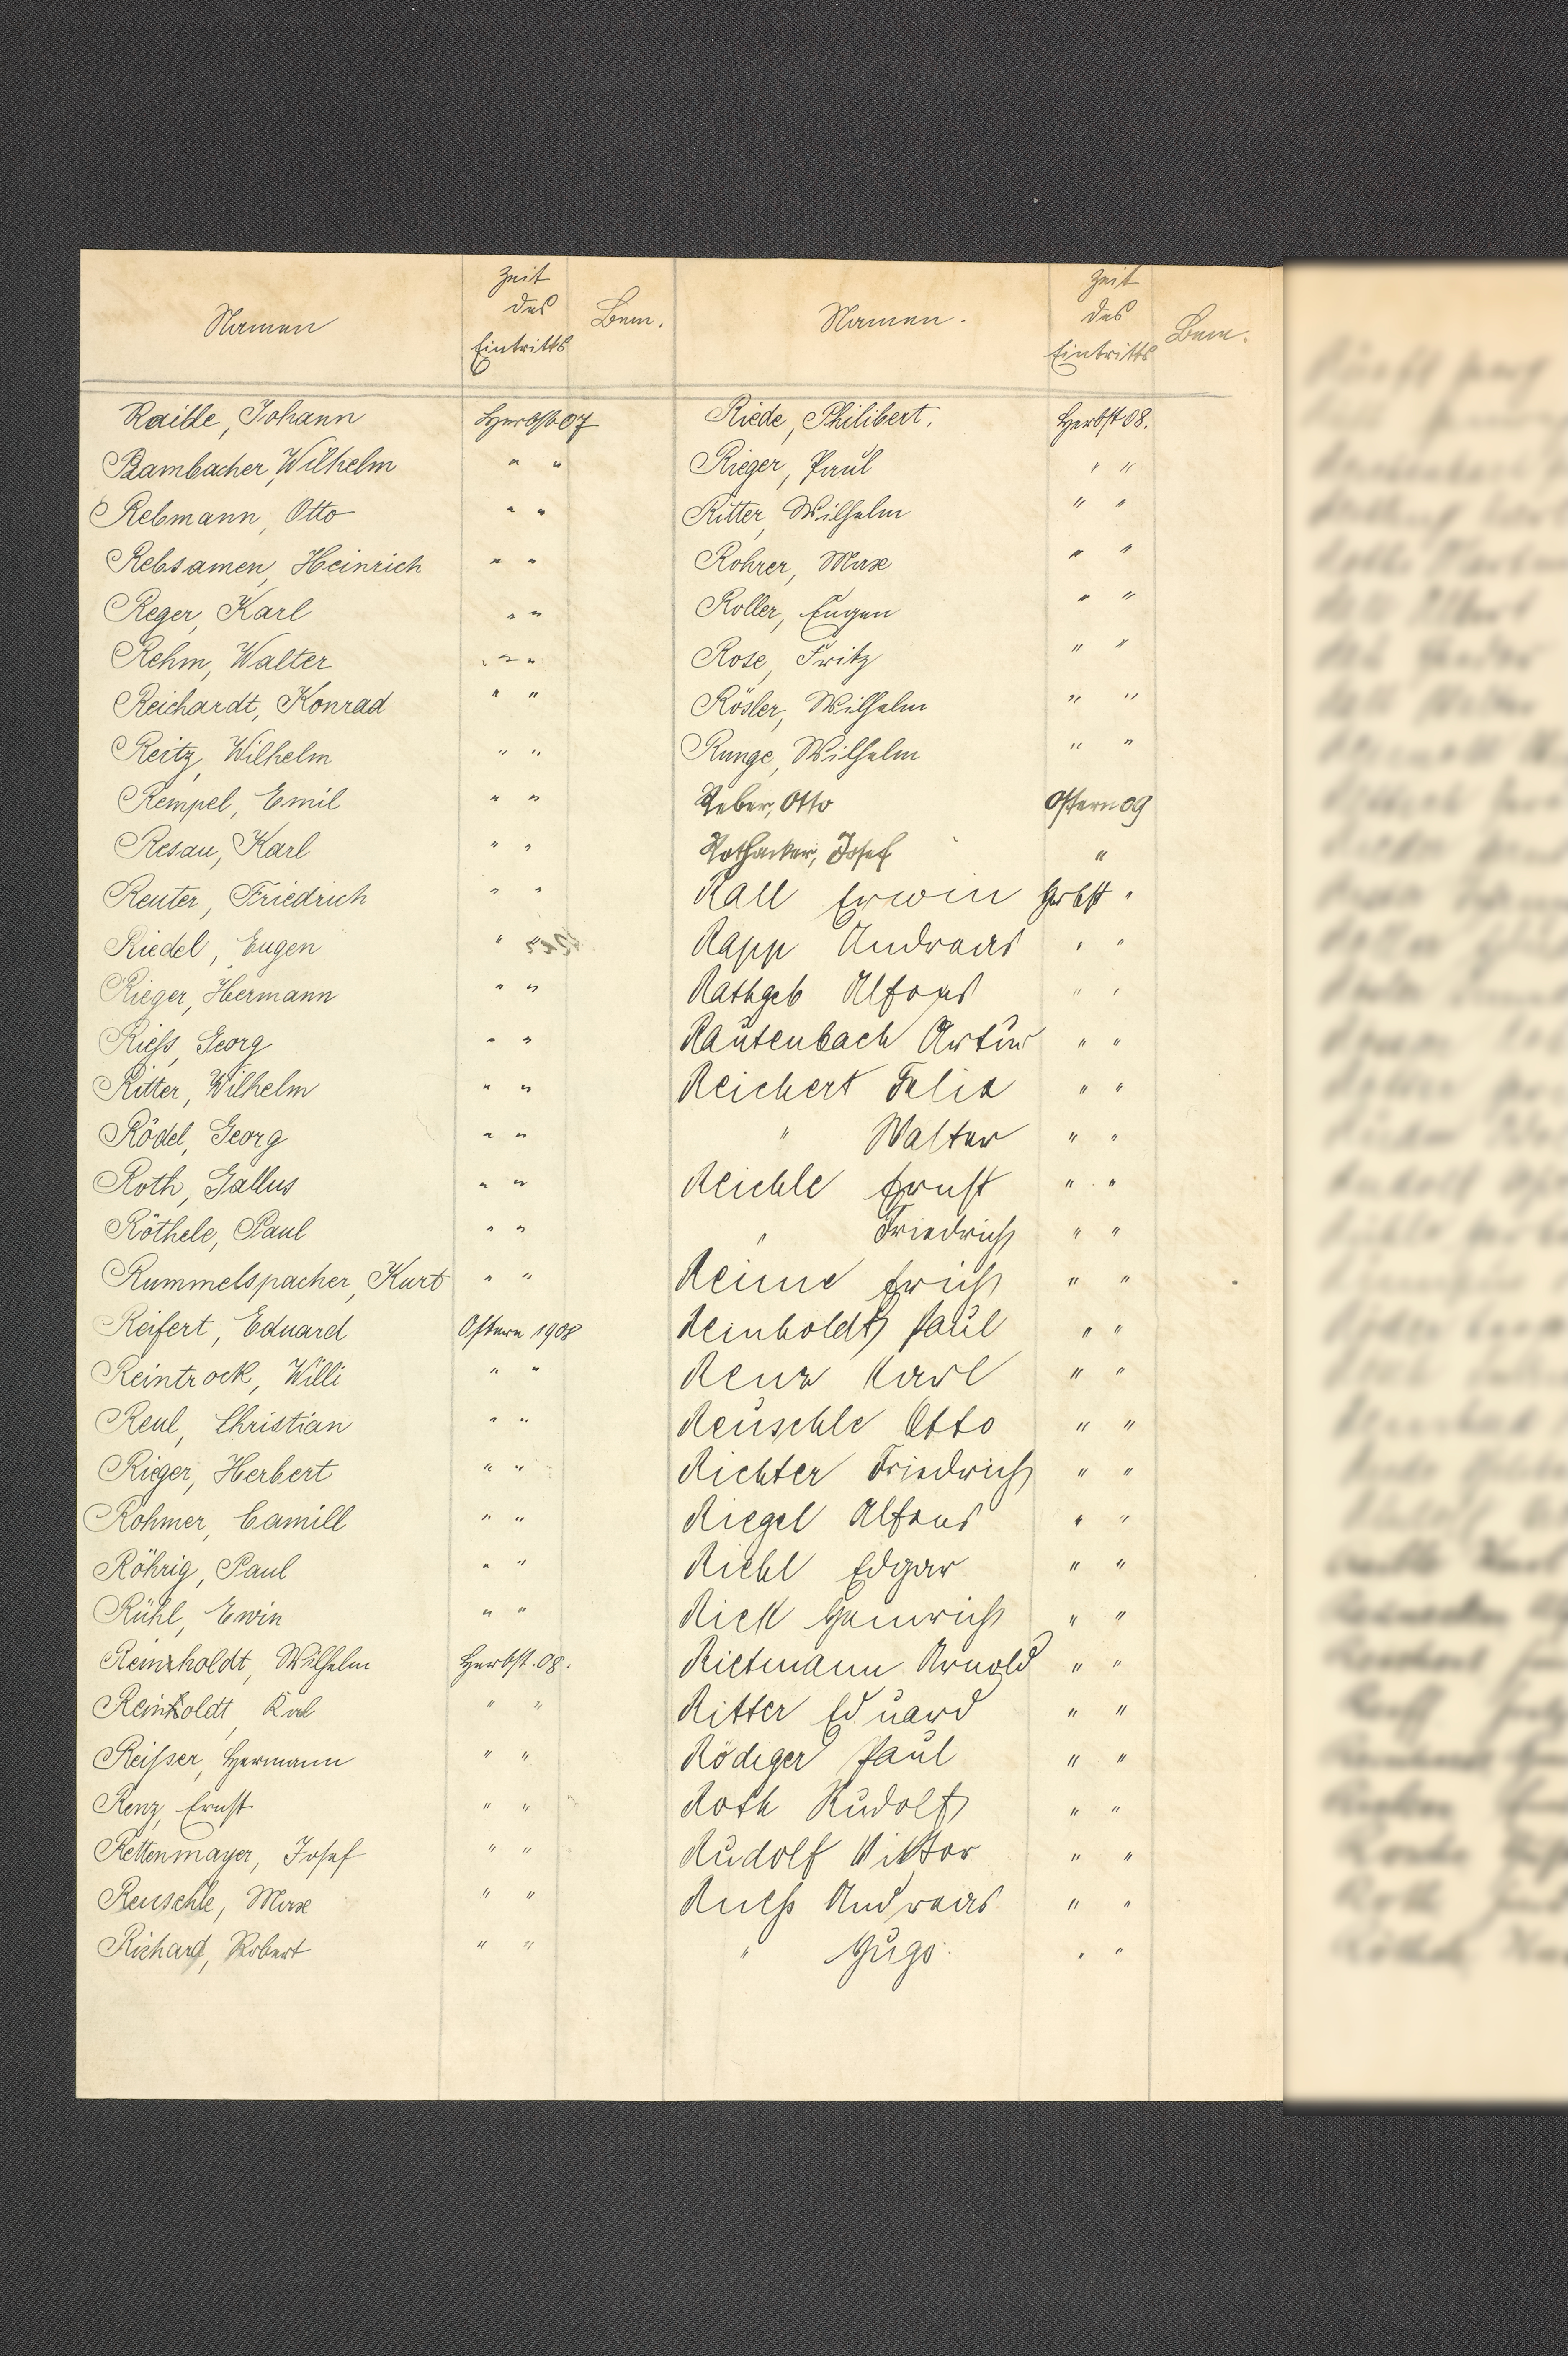 Namen
Zeit
des
Eintritts
Bem.
Raible, Johann Herbst 07
Rambacher, Wilhelm " "
Rebmann, Otto " "
Rebsamen, Heinrich " "
Reger, Karl " "
Rehm, Walter " "
Reichardt, Konrad " "
Reitz, Wilhelm " "
Rempel, Emil " "
Resau, Karl " "
Reuter, Friedrich " "
Riedel, Eugen " "
Rieger, Hermann " "
Riess, Georg " "
Ritter, Wilhelm " "
Rödel, Georg " "
Roth, Gallus " "
Röthele, Paul " "
Rummelspacher, Kurt " "
Reifert, Eduard Ostern 1908
Reintrock, Willi " "
Reul, Christian " "
Rieger, Herbert " "
Rohmer, Camill " "
Röhrig, Paul " "
Rühl, Erwin " "
Reinholdt, Wilhelm Herbst. 08.
Reinholdt, Karl " "
Reisser, Hermann " "
Renz, Ernst " "
Rettenmayer, Josef " "
Reuschle, Max " "
Richard, Robert " "
Namen.
Zeit
des
Eintritts
Bem.
Riede, Philibert. Herbst 08.
Rieger, Paul " "
Ritter, Wilhelm " "
Rohrer, Max " "
Roller, Eugen " "
Rose, Fritz " "
Rösler, Wilhelm " "
Runge, Wilhelm " "
Reber, Otto Ostern 09
Rothacker, Josef "
Rall Erwin Herbst "
Rapp Andreas " "
Rathgeb Alfons " "
Rautenbach Artur " "
Reichert Felix " "
" Walter " "
Reichle Ernst " "
" Friedrich " "
Reime Erich " "
Reinboldt Paul " "
Renz Karl " "
Reuschle Otto " "
Richter Friedrich " "
Riegel Alfons " "
Riehl Edgar " "
Riek Heinrich " "
Rietmann Arnold " "
Ritter Eduard " "
Rödiger Paul " "
Roth Rudolf " "
Rudolf Viktor " "
Ruess Andreas " "
" Hugo " "